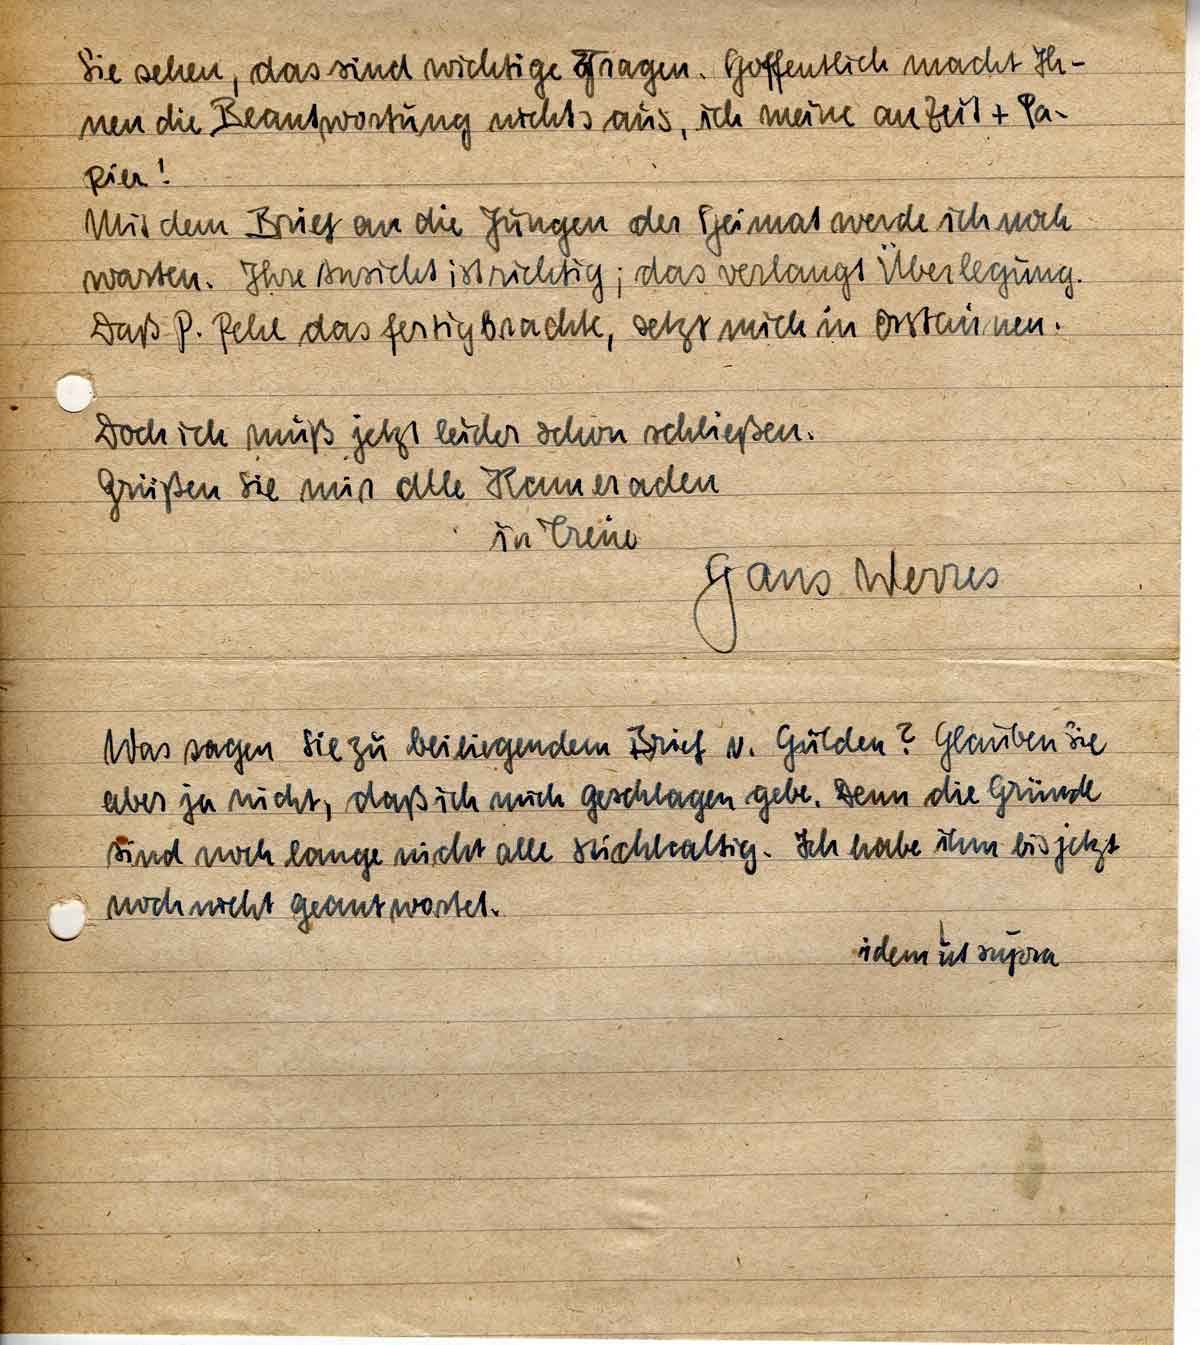 Sie sehen, das sind wichtige Fragen. Hoffentlich macht Ih-
nen die Beantwortung nichts aus, ich meine an Zeit + Pa-
pier!
Mit dem Brief an die Jungen der Heimat werde ich noch
warten. Ihre Ansicht ist richtig; das verlangt Überlegung.
Daß P. das fertigbrachte, setzt mich in Erstaunen.
Doch ich muß jetzt leider schon schließen.
Grüßen Sie mir alle Kameraden
in Treue
Hans Werres
Was sagen Sie zu beiliegendem Brief v. Gülden? Glauben Sie
aber ja nicht, daß ich mich geschlagen gebe. Denn die Gründe
sind noch lange nicht alle stichhaltig. Ich habe ihm bis jetzt
noch nicht geantwortet.
idem ut supra